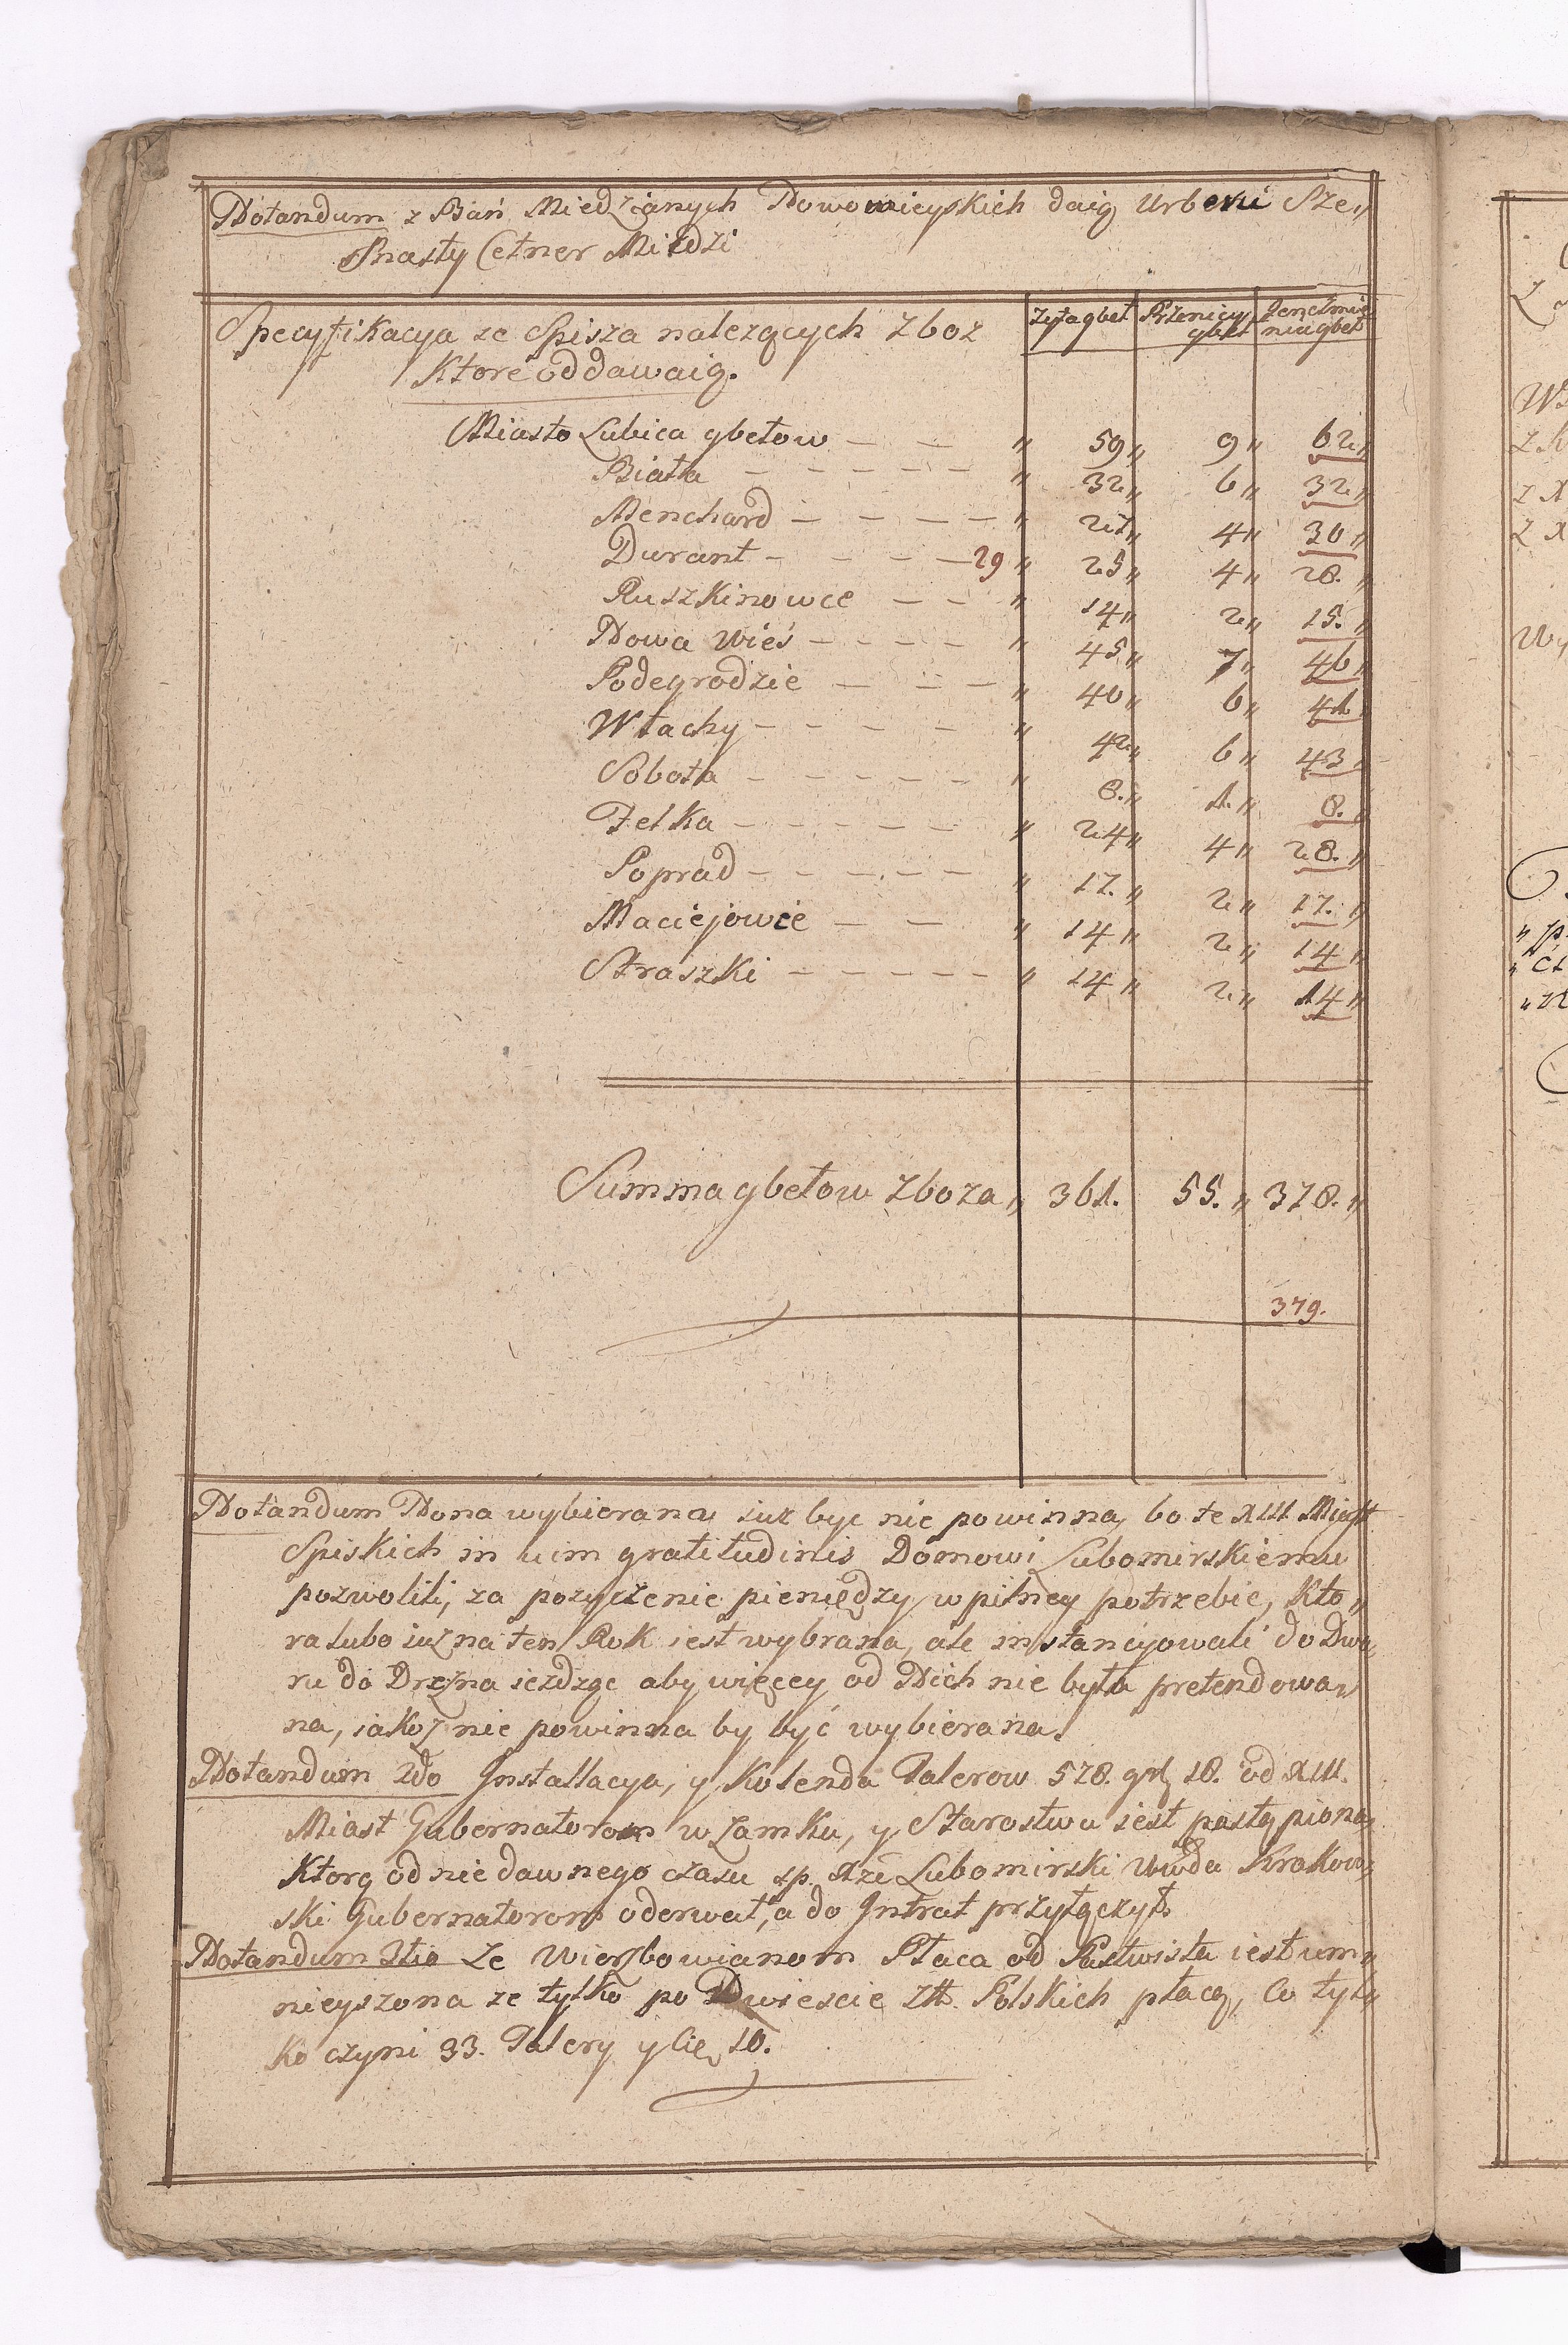 Notandum z Bań Miedzianych Nowowieyskich daią Urberu Sze„
snasty Cetner Miedzi
Specyfikacya ze Spisza nalezących Zboz
Ktore oddawaią.
Zyta gbeł Pszenicy gbeł Jenczmie nia gbeł
Miasto Lubica gbełow — — „ 59„ 9„ 62„
Biała — — — — — „ 32„ 6„ 32„
Menchard — — — — — „ 27„ 4„ 30„
Durant — — — — 29 „ 25„ 4„ 28.„
Ruszkinowce — — „ 14„ 2„ 15.„
Nowa Wieś — — — — „ 45„ 7„ 46„
Podegrodzie — — — „ 40„ 6„ 41„
Włachy — — — — „ 42„ 6„ 43„
Sobota — — — — — „ 8.„ 1.„ 8.„
Felka — — — — — „ 24„ 4„ 28.„
Poprad — — — — — „ 17.„ 2„ 17.„
Maciejowce — — „ 14„ 2„ 14„
Straszki — — — — „ 14„ 2„ 14„
Summa gbełow Zboza „ 361. 55.„ 378.„
379.
Notandum Nona wybierana iuz byc nie powinna, bo te XIII Miast
Spiskich in vim gratitudinis Domowi Lubomirskiemu
pozwolili, za pozyczenie pieniędzy w pilney potrzebie, Kto„
ra lubo iuz na ten Rok iest wybrana, ale instancyowali do Dwo„
ru do Drezna iezdząc aby więcey od Nich nie była pretendowa„
na, iakoz nie powinna by być wybierana.
Notandum 2do Installacya, y Kolenda Talerow 578. gr 18. od XIII.
Miast Gubernatorom w Zamku, y Starostwu iest postąpiona,
Ktorą od nie dawnego czasu sp. Xze Lubomirski Wwda Krakow„
ski Gubernatorom oderwał, a do Intrat przyłączył.
Notandum 3tio Ze Wierzbowianom Płaca od Pastwiska iest um„
nieyszona ze tylko po Dwiescie Zł. Polskich płacą, Co tyl„
ko czyni 33. Talery y Cię 10.